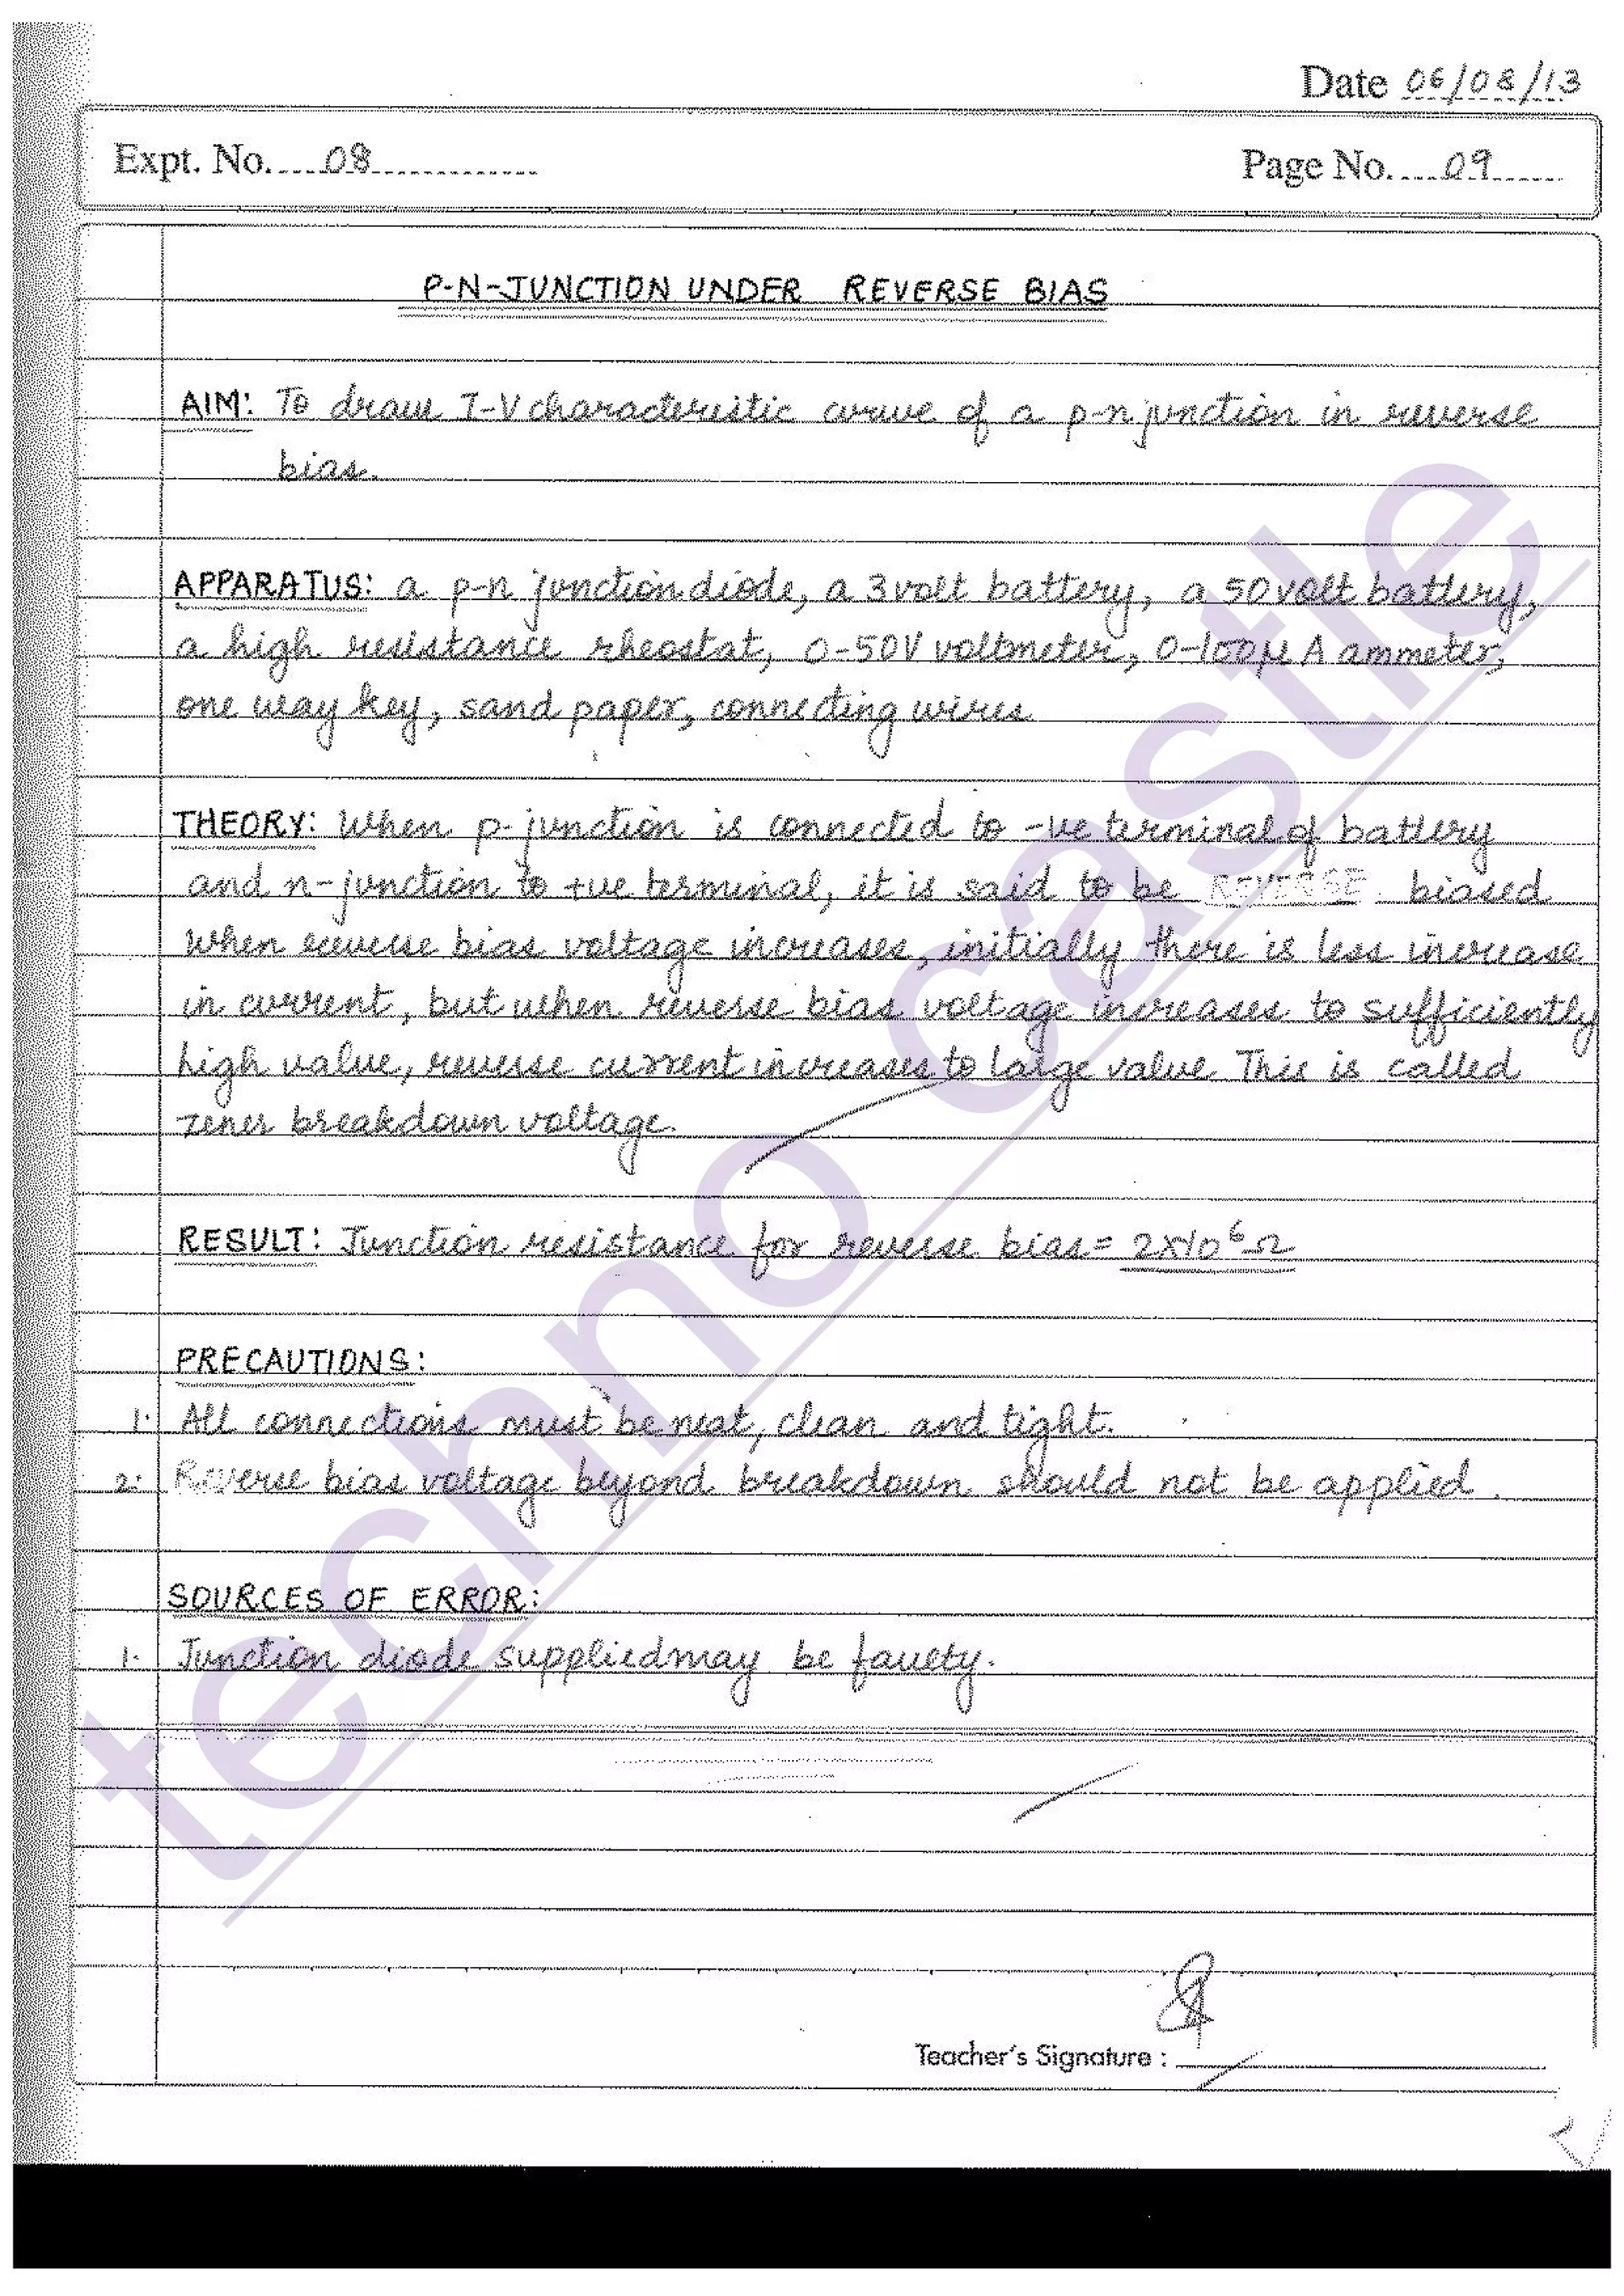 Date 06/08/13
Expt. No. 08
Page No. 09
P-N-JUNCTION UNDER REVERSE BIAS
AIM: To draw I-V characteristic curve of a p-n junction in reverse
bias.
APPARATUS: a p-n junction diode, a 3 volt battery, a 50 volt battery,
a high resistance rheostat, 0-50V voltmeter, 0-100μA ammeter,
one way key, sand paper, connecting wires
THEORY: When p-junction is connected to -ve terminal of battery
and n-junction to +ve terminal, it is said to be REVERSE biased
When reverse bias voltage increases, initially there is less increase
in current, but when reverse bias voltage increases to sufficiently
high value, reverse current increases to large value This is called
zener breakdown voltage.
RESULT: Junction resistance for reverse bias = 2x10⁶Ω
PRECAUTIONS:
1. All connections must be neat, clean and tight.
2. Reverse bias voltage beyond breakdown should not be applied.
SOURCES OF ERROR:
1. Junction diode supplied may be faulty.
Teacher's Signature :
techno castle